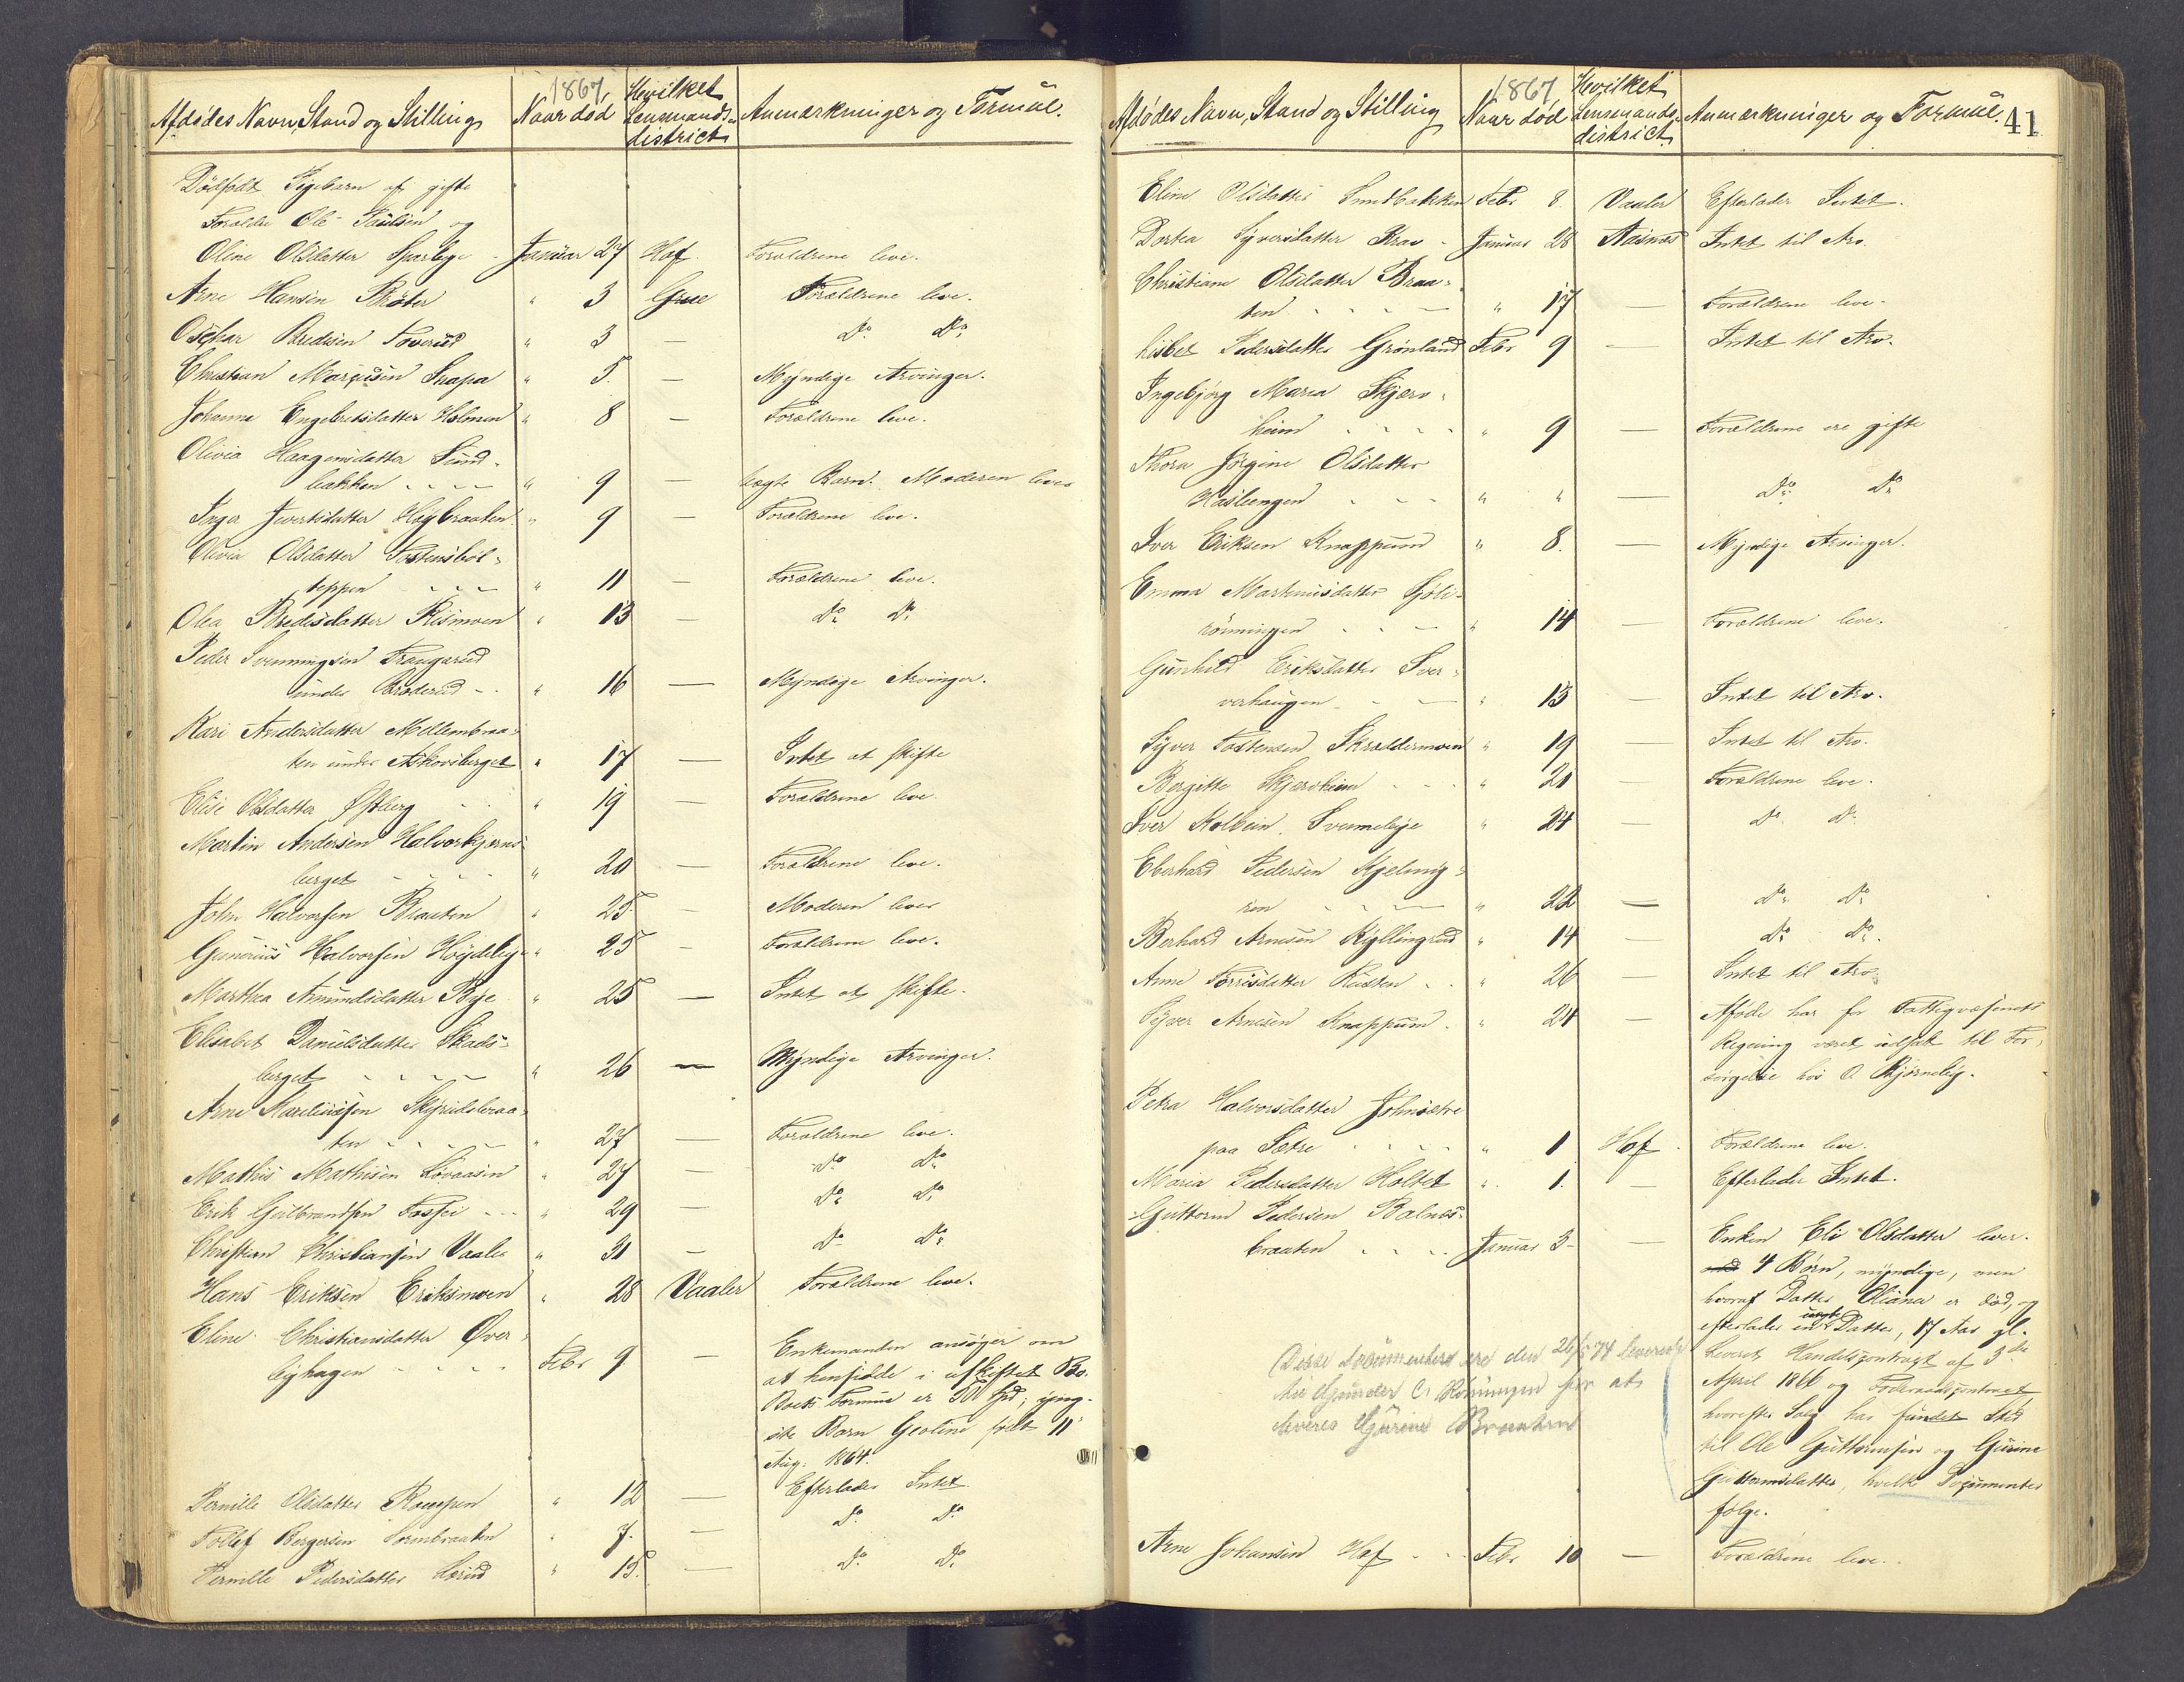 Afdödes Navn, Stand og Stilling
1867
Naar död
Hvilket Lensmands district
Anmærkninger og Formue.
Dödfödt Pigebarn af gifte
Forældre Ole Paulsen og
Oline Olsdatter Sparbye - Januar 27 Hof. Forældrene leve.
Arne Hansen Bråten " 3 Grue Forældrene leve.
Oschar Bredesen Toverud " 3 — Do Do
Christian Marcusen Snapa " 5. — Myndige Arvinger.
Johanna Engebretsdatter Holmen " 8 — Forældrene leve.
Olivia Haagensdatter Sund-
bakken " 9 — uægte Barn. Moderen lever
Inger Iversdatter Høgbraaten " 9 — Forældrene leve.
Olivia Olsdatter Tostensböl-
teppen " 11 — Forældrene leve.
Olea Bredesdatter Rismoen " 13 — Do Do
Peder Svenningsen Frangarud
under Broderud " 16 — Myndige Arvinger.
Kari Andersdatter Mellembraa-
ten under Askovsberget " 17 — Intet at skifte
Elise Olsdatter Østberg " 19 — Forældrene leve
Martin Andersen Halvorkjerns-
berget " 20 — Forældrene leve.
John Halvorsen Braaten " 25. — Moderen lever
Gunerius Halvorsen Höydeby " 25 — Forældrene leve.
Marthea Amundsdatter Bye " 25 — Intet at skifte.
Elisabet Danielsdatter Skads-
berget " 26 — Myndige Arvinger.
Arne Skyrudsbraa-
ten " 27 — Forældrene leve.
Mathis Mathisen Lövaasen " 27 — Do Do
Erik Gulbrandsen Fossei " 29 — Do Do
Christian Christiansen Vaaler " 31 — Do Do
Hans Eriksen Eriksmoen " 28 Vaaler Forældrene leve.
Eline Christiansdatter Over-
byhagen Febr 9 — Enkemanden ansöger om
at hensidde i uskiftet Bo.
Boets Formue er Spd, yng-
ste Barn födt 11
Aug: 1864.
Pernille Olsdatter Rampen " 12 — Efterlader Intet
Tollef Bergersen Sormbraaten " 7. — Do Do
Pernille Pedersdatter Hörud " 15. — Do Do
Afdödes Navn, Stand og Stilling
1867
Naar död
Hvilket Lensmands district
Anmærkninger og Formue.
41
Eline Olsdatter Sundbakken Febr 8. Vaaler Efterlader Intet.
Dortea Syversdatter Krav - Januar 28 Aasnæs Intet til Arv.
Christiane Olsdatter Braa-
ten " 17 — Forældrene leve.
Lisbet Pedersdatter Grönland Febr 9 — Intet til Arv.
Ingebjörg Marea Skjærs-
heim " 9 — Forældrene ere gifte
Thora Jörgine Olsdatter
Haslengen " " — Do Do
Iver Eriksen Knappum " 8. — Myndige Arvinger.
Emma Martinusdatter Sjöli-
rönningen " 14 — Forældrene leve.
Gunhild Eriksdatter Sver-
verhaugen " 13 — Intet til Arv.
Syver Tostensen Skraddermoen " 19 — Intet til Arv.
Bergitte Skjærsheim " 21 — Forældrene leve.
Iver Kolbein. Svenneby " 24 — Do Do
Eberhard Pedersen Kjelmig-
ren " 22 — Do Do
Berhard Arnesen Kyllingrud " 14 — Do Do.
Anne Torrisdatter Rusten " 26 — Intet til Arv.
Syver Arnesen Knappum " 24 — Afdöde har for Fattigvæsenets
Regning været udsat til For-
sörgelse hos O. Bjørneby.
Petra Halvorsdatter Johnsætre
paa Sætre " 1 Hof Forældrene leve.
Maria Pedersdatter Holtet " 1. — Efterlader Intet.
Guttorm Pedersen Balnes-
braaten Januar 3 — Enken Eli Olsdatter lever.
4 Börn, myndige, men
hvoraf Datter Oliana er död, og
efterlader en uægte Datter, 17 Aar gl.
leveret Handelscontragt af 3die
April 1866 og Föderaadscontract
hvorefter Salg har fundet Sted
til Ole Guttormsen og Gurine
Guttormsdatter, hvilke Documenter
fölge.
Disse Documenter ere den 26/5 74 leverede
C. Rönningen for at
leveres Gurine Braaten
Arne Johansen Hof Febr 10 — Forældrene leve.